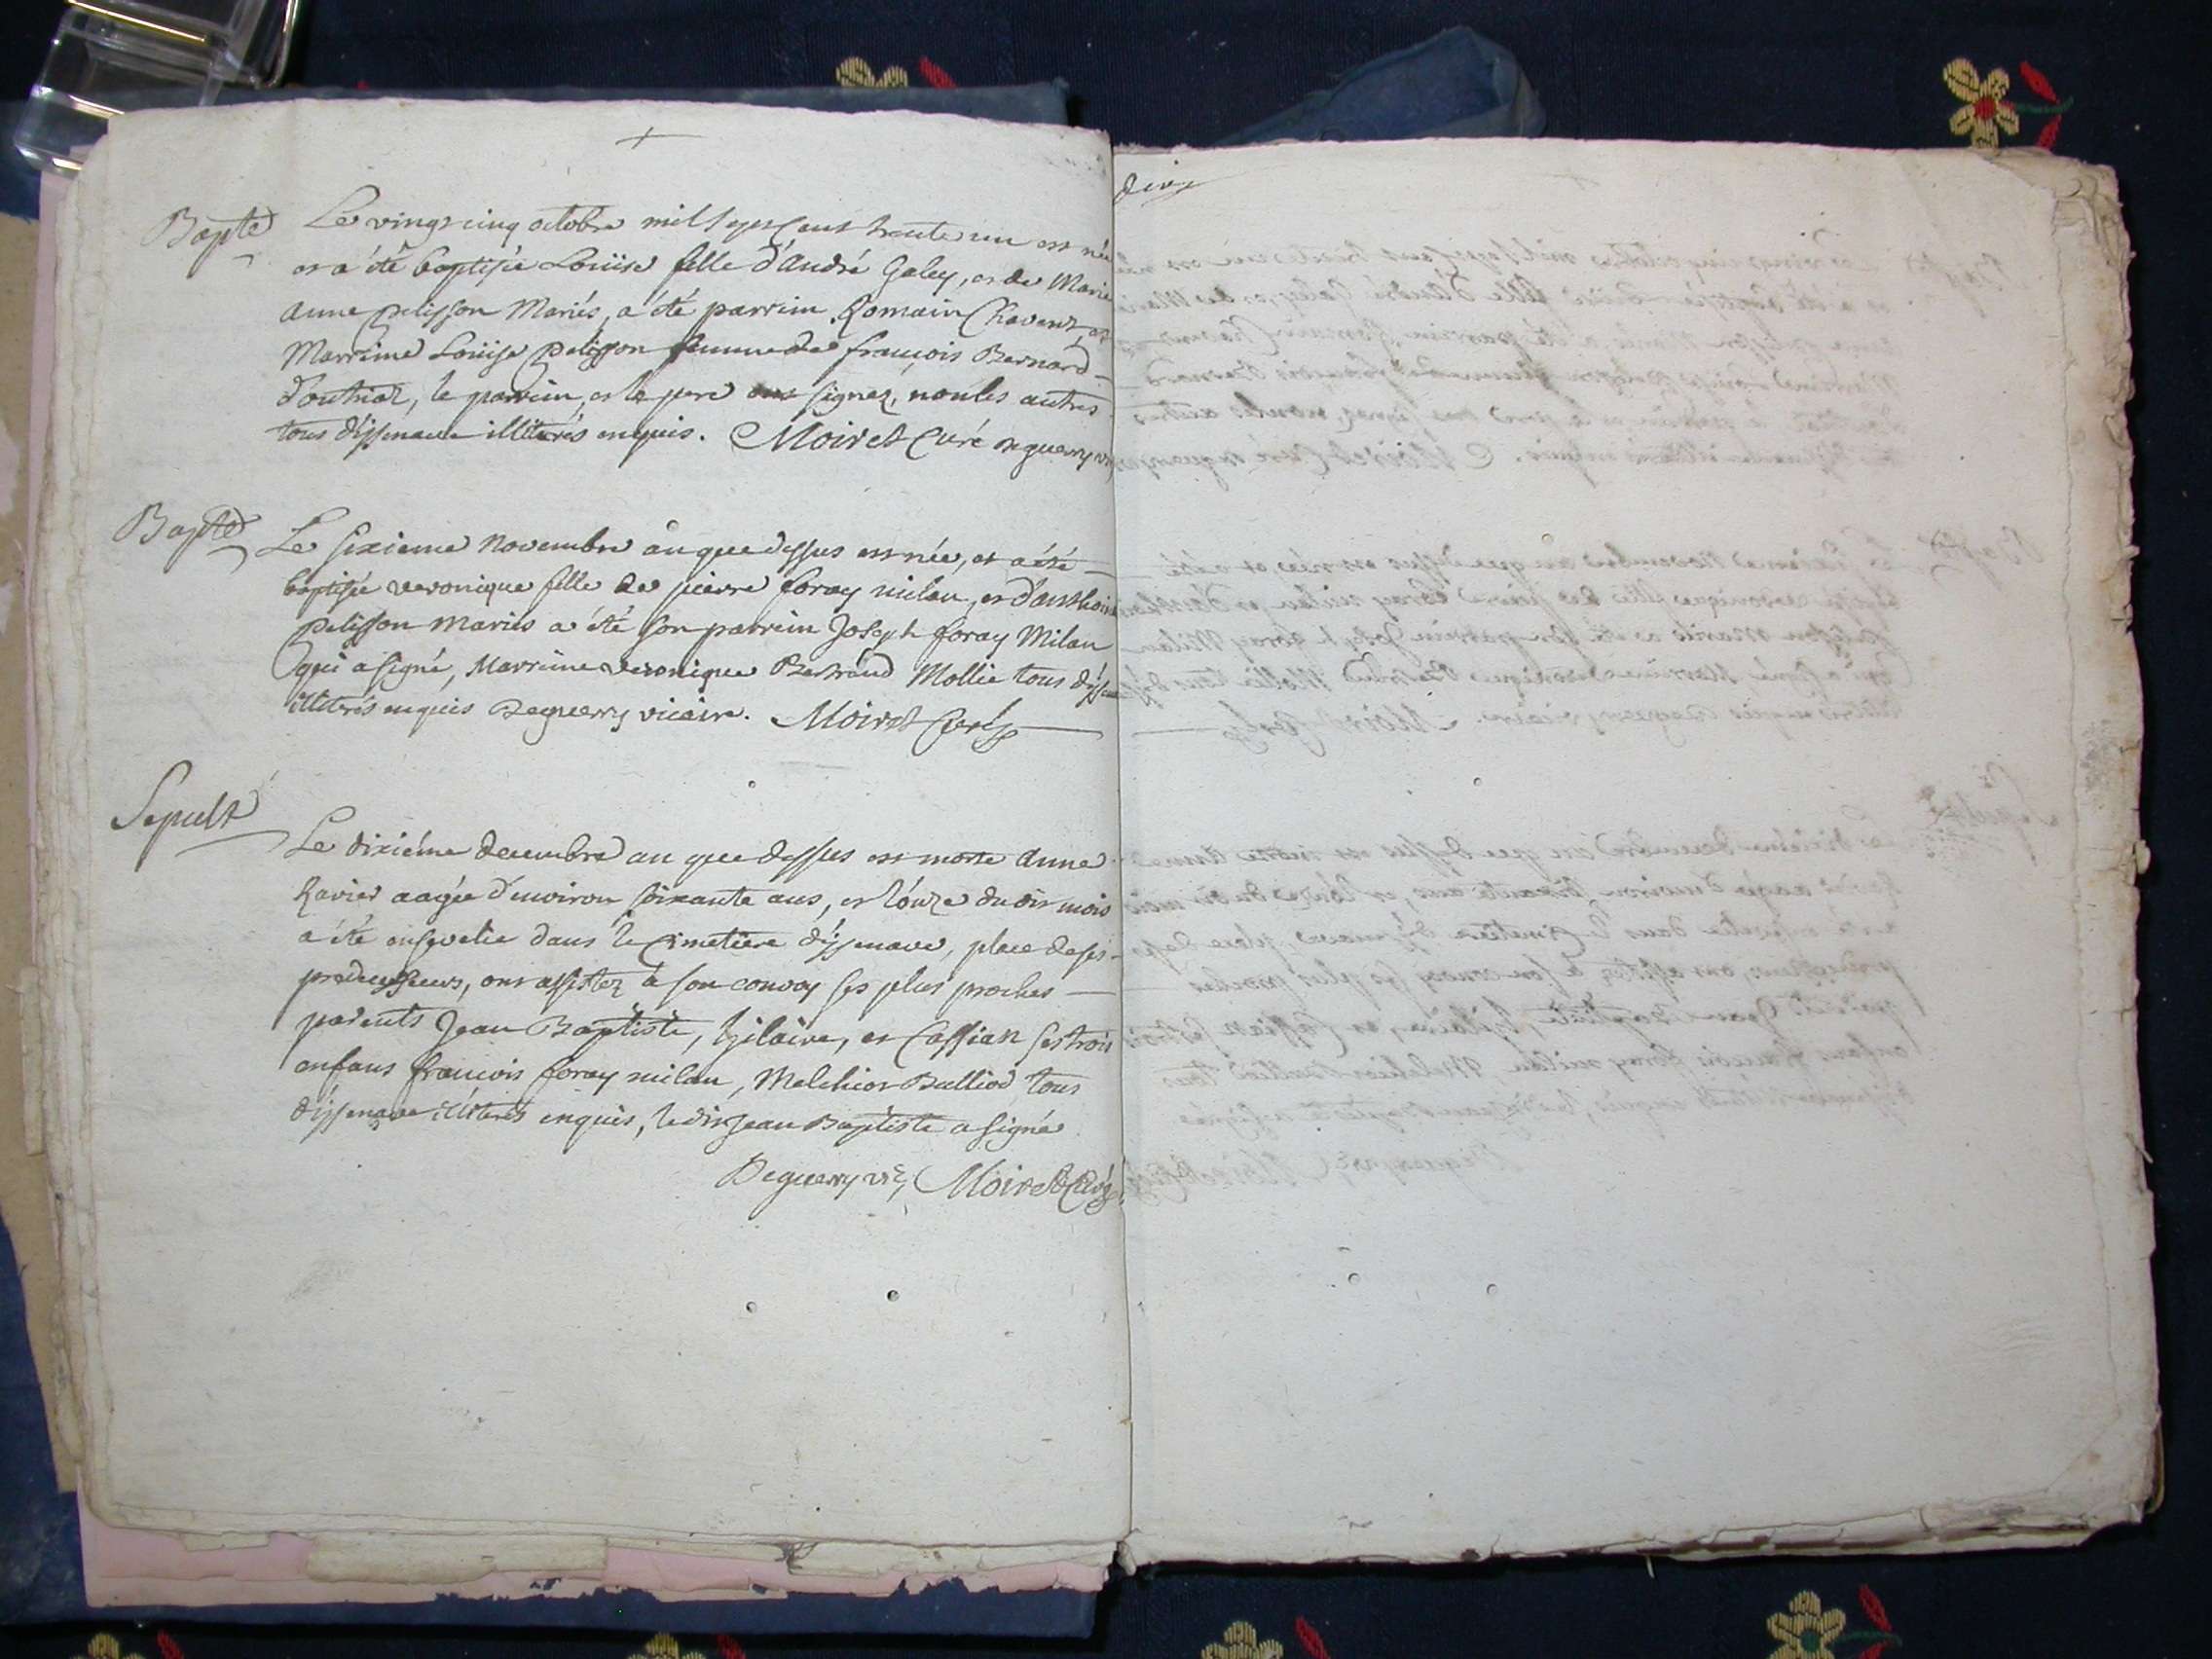 Bapte Le vingt cinq octobre mil sept cent trente un est née
et a été baptisée Loüise fille d'André Galey, et de Marie
Anne pelisson Mariés, a été parrein Romain Chavent, et
Marreine Loüise pelisson femme de françois Bernard
d'outriaz, le parrein, et le pere ont signez, non les autres
tous d'issenave illiterés enquis. Moiret Curé Deguerry vic
Bapte Le sixieme Novembre an que dessus est née, et a été
baptisée veronique fille de pierre foray milan, et d'anthoin
pelisson Mariés a été son parrein Joseph foray Milan
qui a signé, Marreine veronique Bertrand Mollie tous d'issena
illiterés enquis Deguerry vicaire. Moiret Curé
Sepult Le dixiéme decembre an que dessus est morte Anne
Ravier aagée d'environ soixante ans, et l'onze du dit mois
a été ensevelie dans le Cimetiere d'issenave, place de ses
predecesseurs, ont assistez à son convoy ses plus proches
parents Jean Baptiste, hilaire, et Cassian ses trois
enfans françois foray milan, Melchior Bulliod tous
d'issenave illiterés enquis, le dit Jean Baptiste a signé
Deguerry vic, Moiret Curé
dix